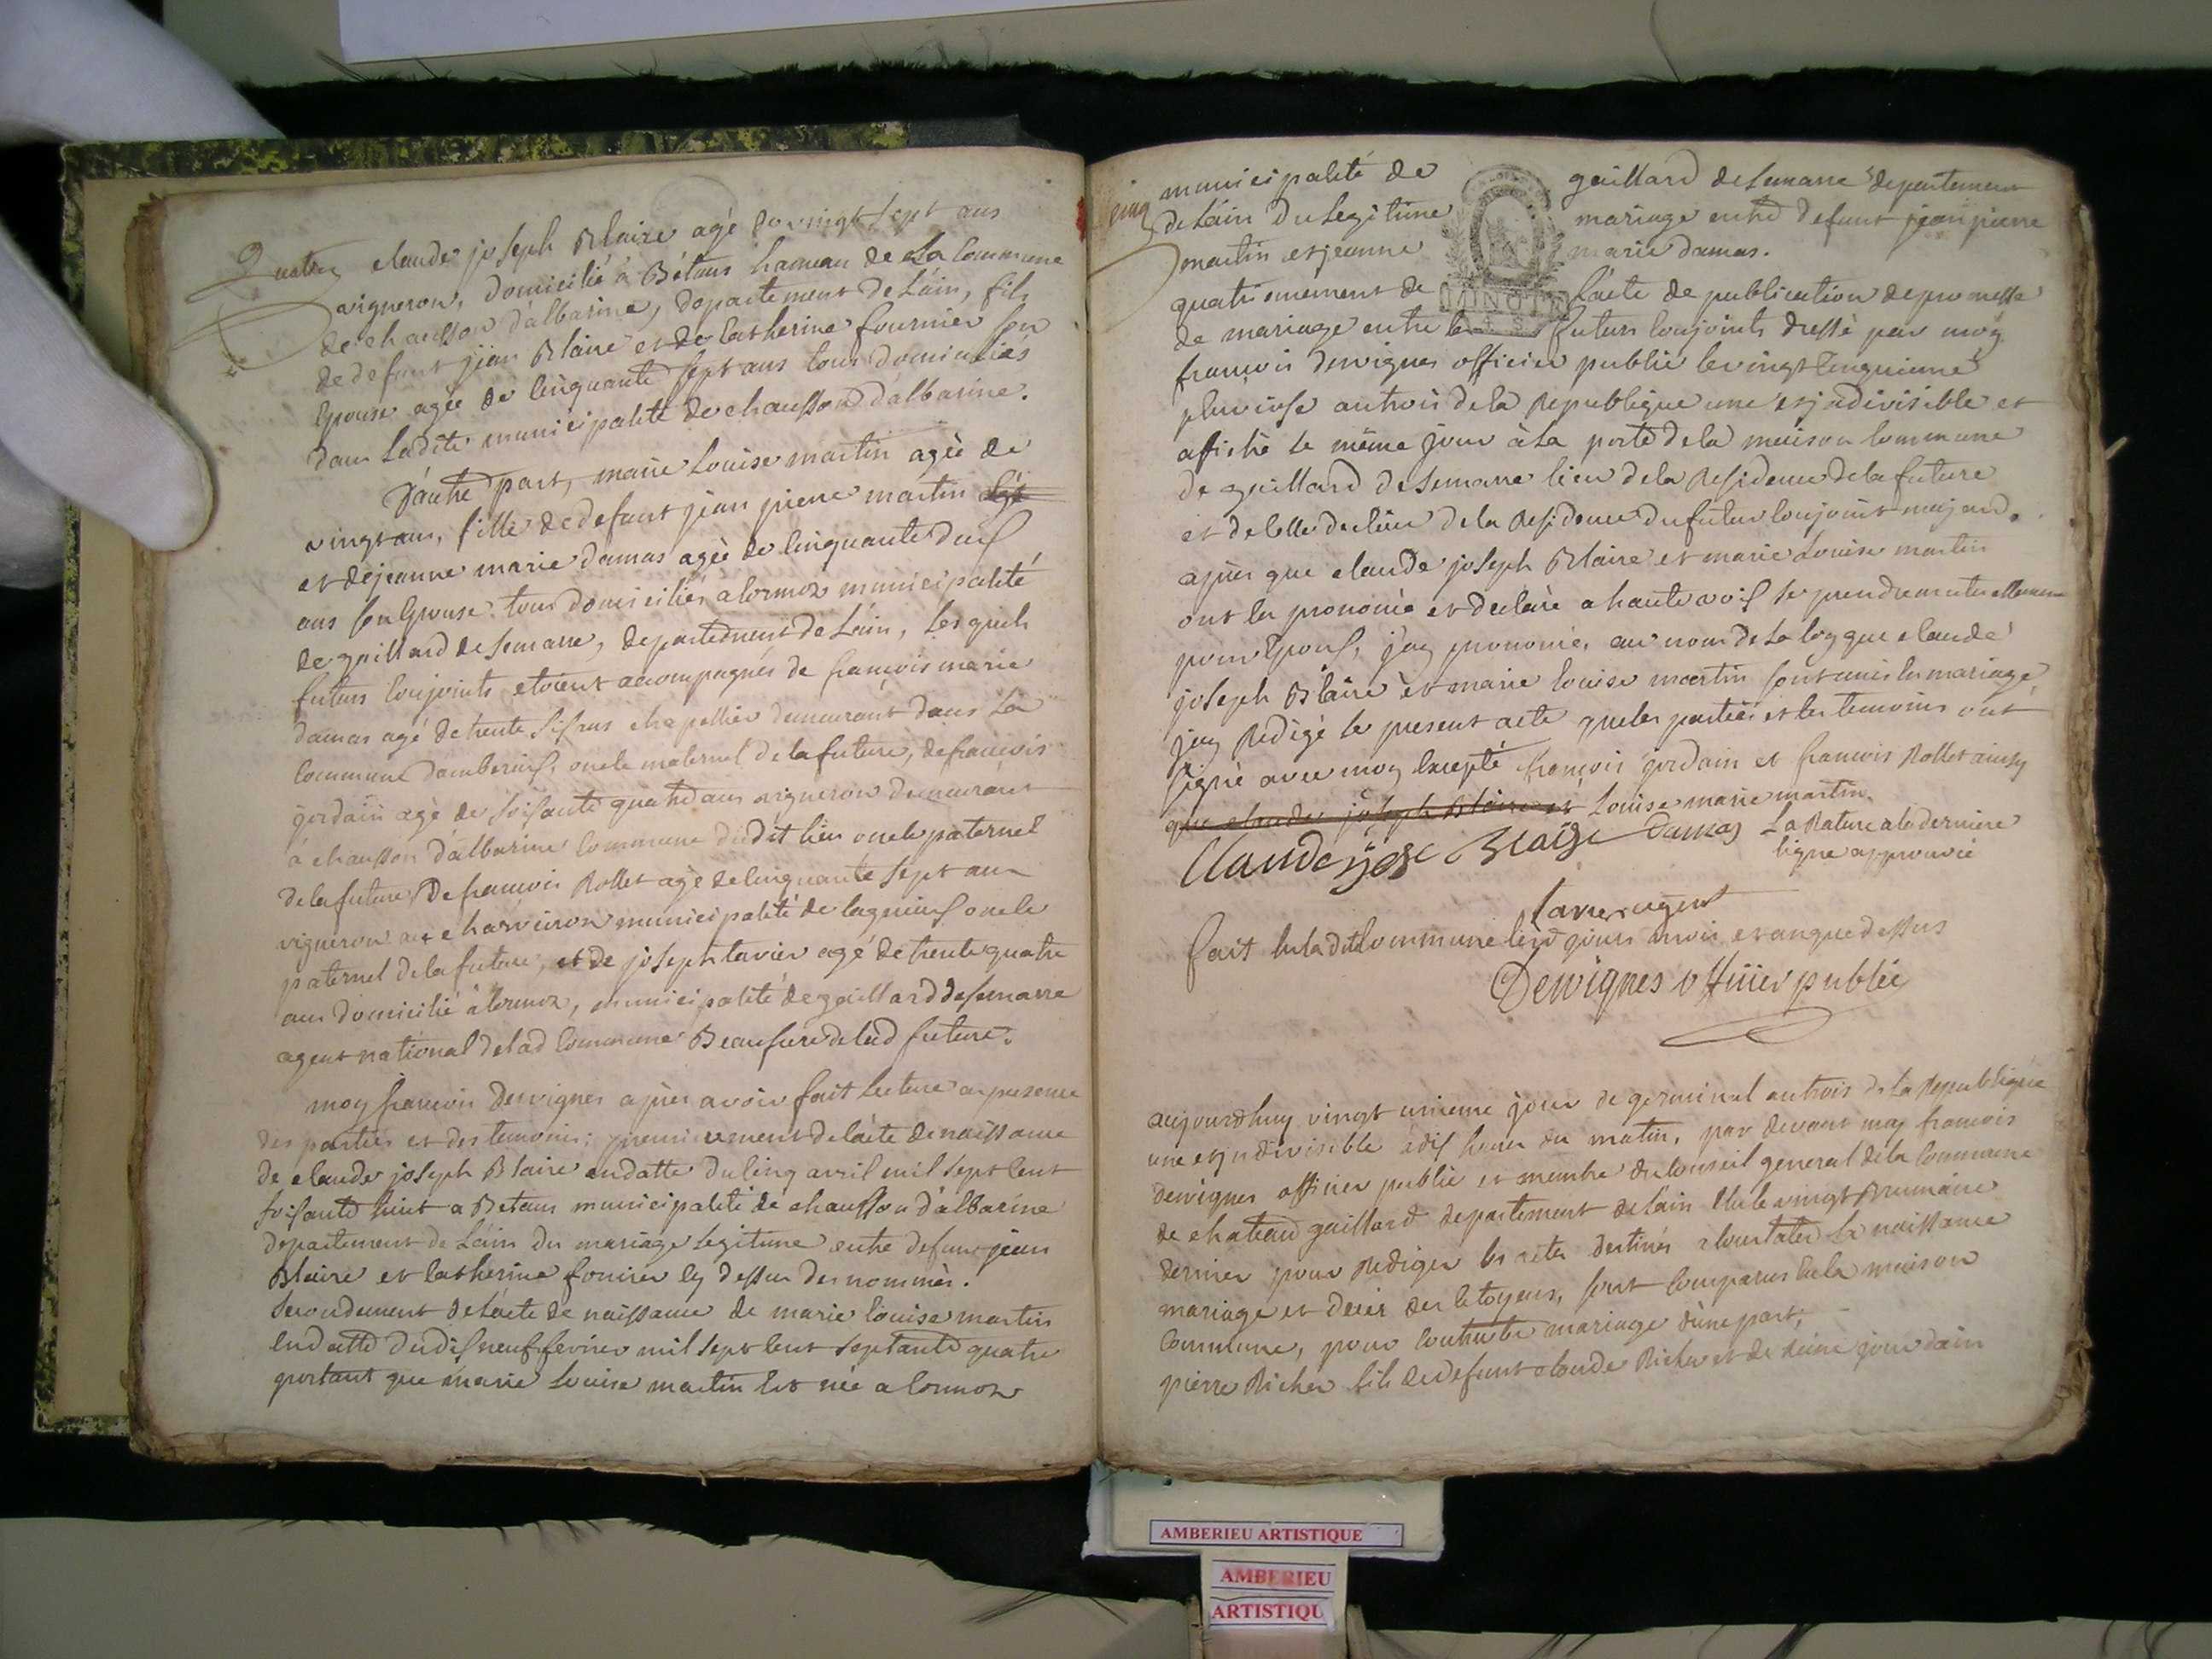 Quatre claude joseph Blaire agé de vingt sept ans
vigneron, domicilié à Bétans hameau de La Commune
de chausson d'albarine, departement de L'ain, fils
de defunt jean Blaire et de Catherine fournier son
Epouse agée de Cinquante sept ans tous domiciliés
dans Ladite municipalité de chausson d'albarine.
D'autre part, marie Louise martin agée de
vingt ans, fille de defunt jean pierre martin
et de jeanne marie damas agée de Cinquante deux
ans son Epouse tous domiciliés a Cormoz municipalité
de gaillard de Semane, departement de L'ain, Lesquels
futurs Conjoints etoient accompagnés de françois marie
damas agé de trente six ans chapellier demeurant dans La
Commune d'amberieux, oncle maternel de la future, de françois
jordain agé de soisante quatre ans vigneron demeurant
à chausson d'albarine Commune dudit lieu oncle paternel
de la future, De francois Rollet agé de Cinquante sept ans
vigneron a municipalité de lagnieux oncle
paternel de la future, et de joseph tavier agé de trente quatre
ans domicilié à Cormoz, municipalité de gaillard de Semane
agent national de lad Commune Beaufrere de lad future.
moy francois dervignes apres avoir fait lecture en presence
des parties et des temoins; premierement de l'acte de naissance
de claude joseph Blaire en datte du Cinq avril mil sept Cent
soisante huit a Betans municipalité de chausson d'albarine
departement de L'ain du mariage legitime entre defunt jean
Blaire et Catherine fournier Cy dessus denommés.
Secondement de L'acte de naissance de marie Louise martin
En datte du dix neuf fevrier mil sept Cent septante quatre
portant que marie Louise martin Est née a Cormoz
cinq municipalité de gaillard de Semane departement
de L'ain Du Legitime mariage entre defunt jean pierre
martin et jeanne marie damas.
quatriemement de L'acte de publication de promesse
de mariage entre les futurs Conjoints dressé par moy
francois dervignes officier public le vingt Cinquieme
pluviose an trois de la Republique une et indivisible et
affiché le même jour à La porte de la maison Commune
de gaillard de Semane lieu de la Residence de la future
et de Celle du lieu de la Residence du futur Conjoint
apres que claude joseph Blaire et marie Louise martin
ont Eu prononcé et declaré a haute voix se prendre mutuellement
pour Epoux, j'ay prononcé, au nom de La loy que claude
joseph Blaire et marie Louise martin sont unis En mariage
j'ay Redigé le present acte que les parties et les temoins ont
signé avec moy Excepté françois jordain et francois Rollet ainsy
que claude joseph Blaire et Louise marie martin.
Claude jose Blaise Damas La Rature a la derniere
ligne approuvée
tavier agent
fait En la dite Commune les jour mois et an que dessus
Dervignes officier public
aujourdhuy vingt unieme jour de germinal an trois de La Republique
une et indivisible à dix heures du matin, par devant moy francois
dervignes officier public et membre du Conseil general de la Commune
de chateau gaillard departement de L'ain Elu le vingt Brumaire
dernier pour Rediger les actes destinés a Constater la naissance
mariage et deces des Citoyens, sont Comparus En la maison
Commune, pour Contracter mariage d'une part,
pierre Richer fils de defunt claude Richer et de jourdain
AMBERIEU ARTISTIQUE
AMBERIEU
ARTISTIQU